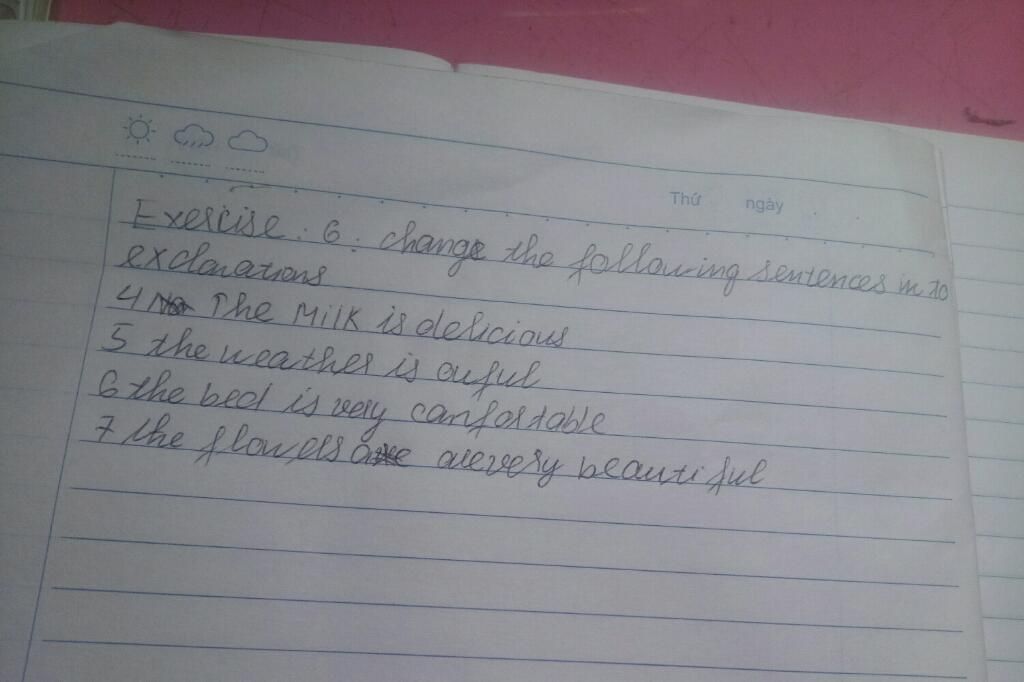 Thứ ngày
Exercise: 6: change the following sentences in to
exclarations
4 The Milk is delicious
5 the weather is awful
6 the bed is very canfortable
7 the flowers are very beautiful